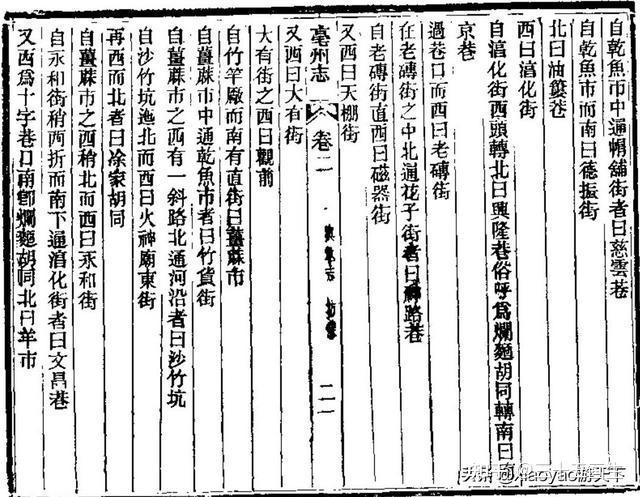 自乾魚市中通帽舖街者曰慈雲巷
北曰油簍巷
自乾魚市而南曰德振街
西曰淯化街
自淯化街西頭轉北曰興隆巷俗呼爲爛麵胡同轉南曰
京巷
過巷口而西曰老磚街
在老磚街之中北通花子街者曰神路巷
自老磚街直西曰磁器街
又西曰天棚街
亳州志 卷二
又西曰大有街
大有街之西曰觀前
自竹竿廠而南有直街曰薑蔴市
自薑蔴市中通乾魚市者曰竹貨街
自薑蔴市之西有一斜路北通河沿者曰沙竹坑
自沙竹坑迤北而西曰火神廟東街
再西而北者曰凃家胡同
自薑蔴市之西稍北而西曰永和街
自永和街稍西折而南下通淯化街者曰文昌巷
又西爲十字巷口南卽爛麵胡同北曰羊市
头条 @xiaoyao游天下